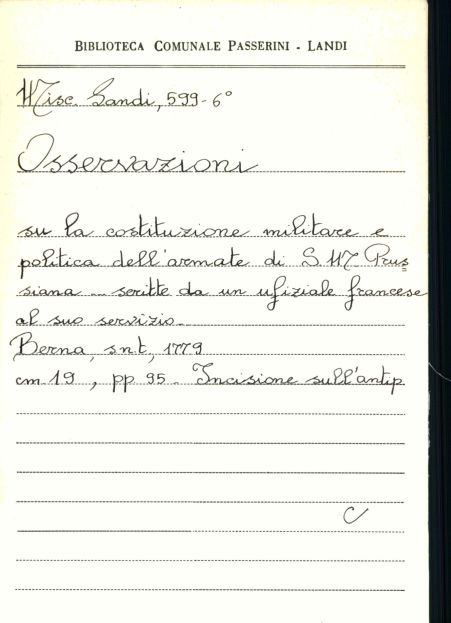 BIBLIOTECA COMUNALE PASSERINI - LANDI
Misc. Landi, 599-6°
Osservazioni
su la costituzione militare e
politica dell'armate di S.M. Prus
siana ... scritte da un ufiziale francese
al suo servizio.
Berna, s.n.t., 1779
cm 19, pp 95. Incisione sull'antip
C